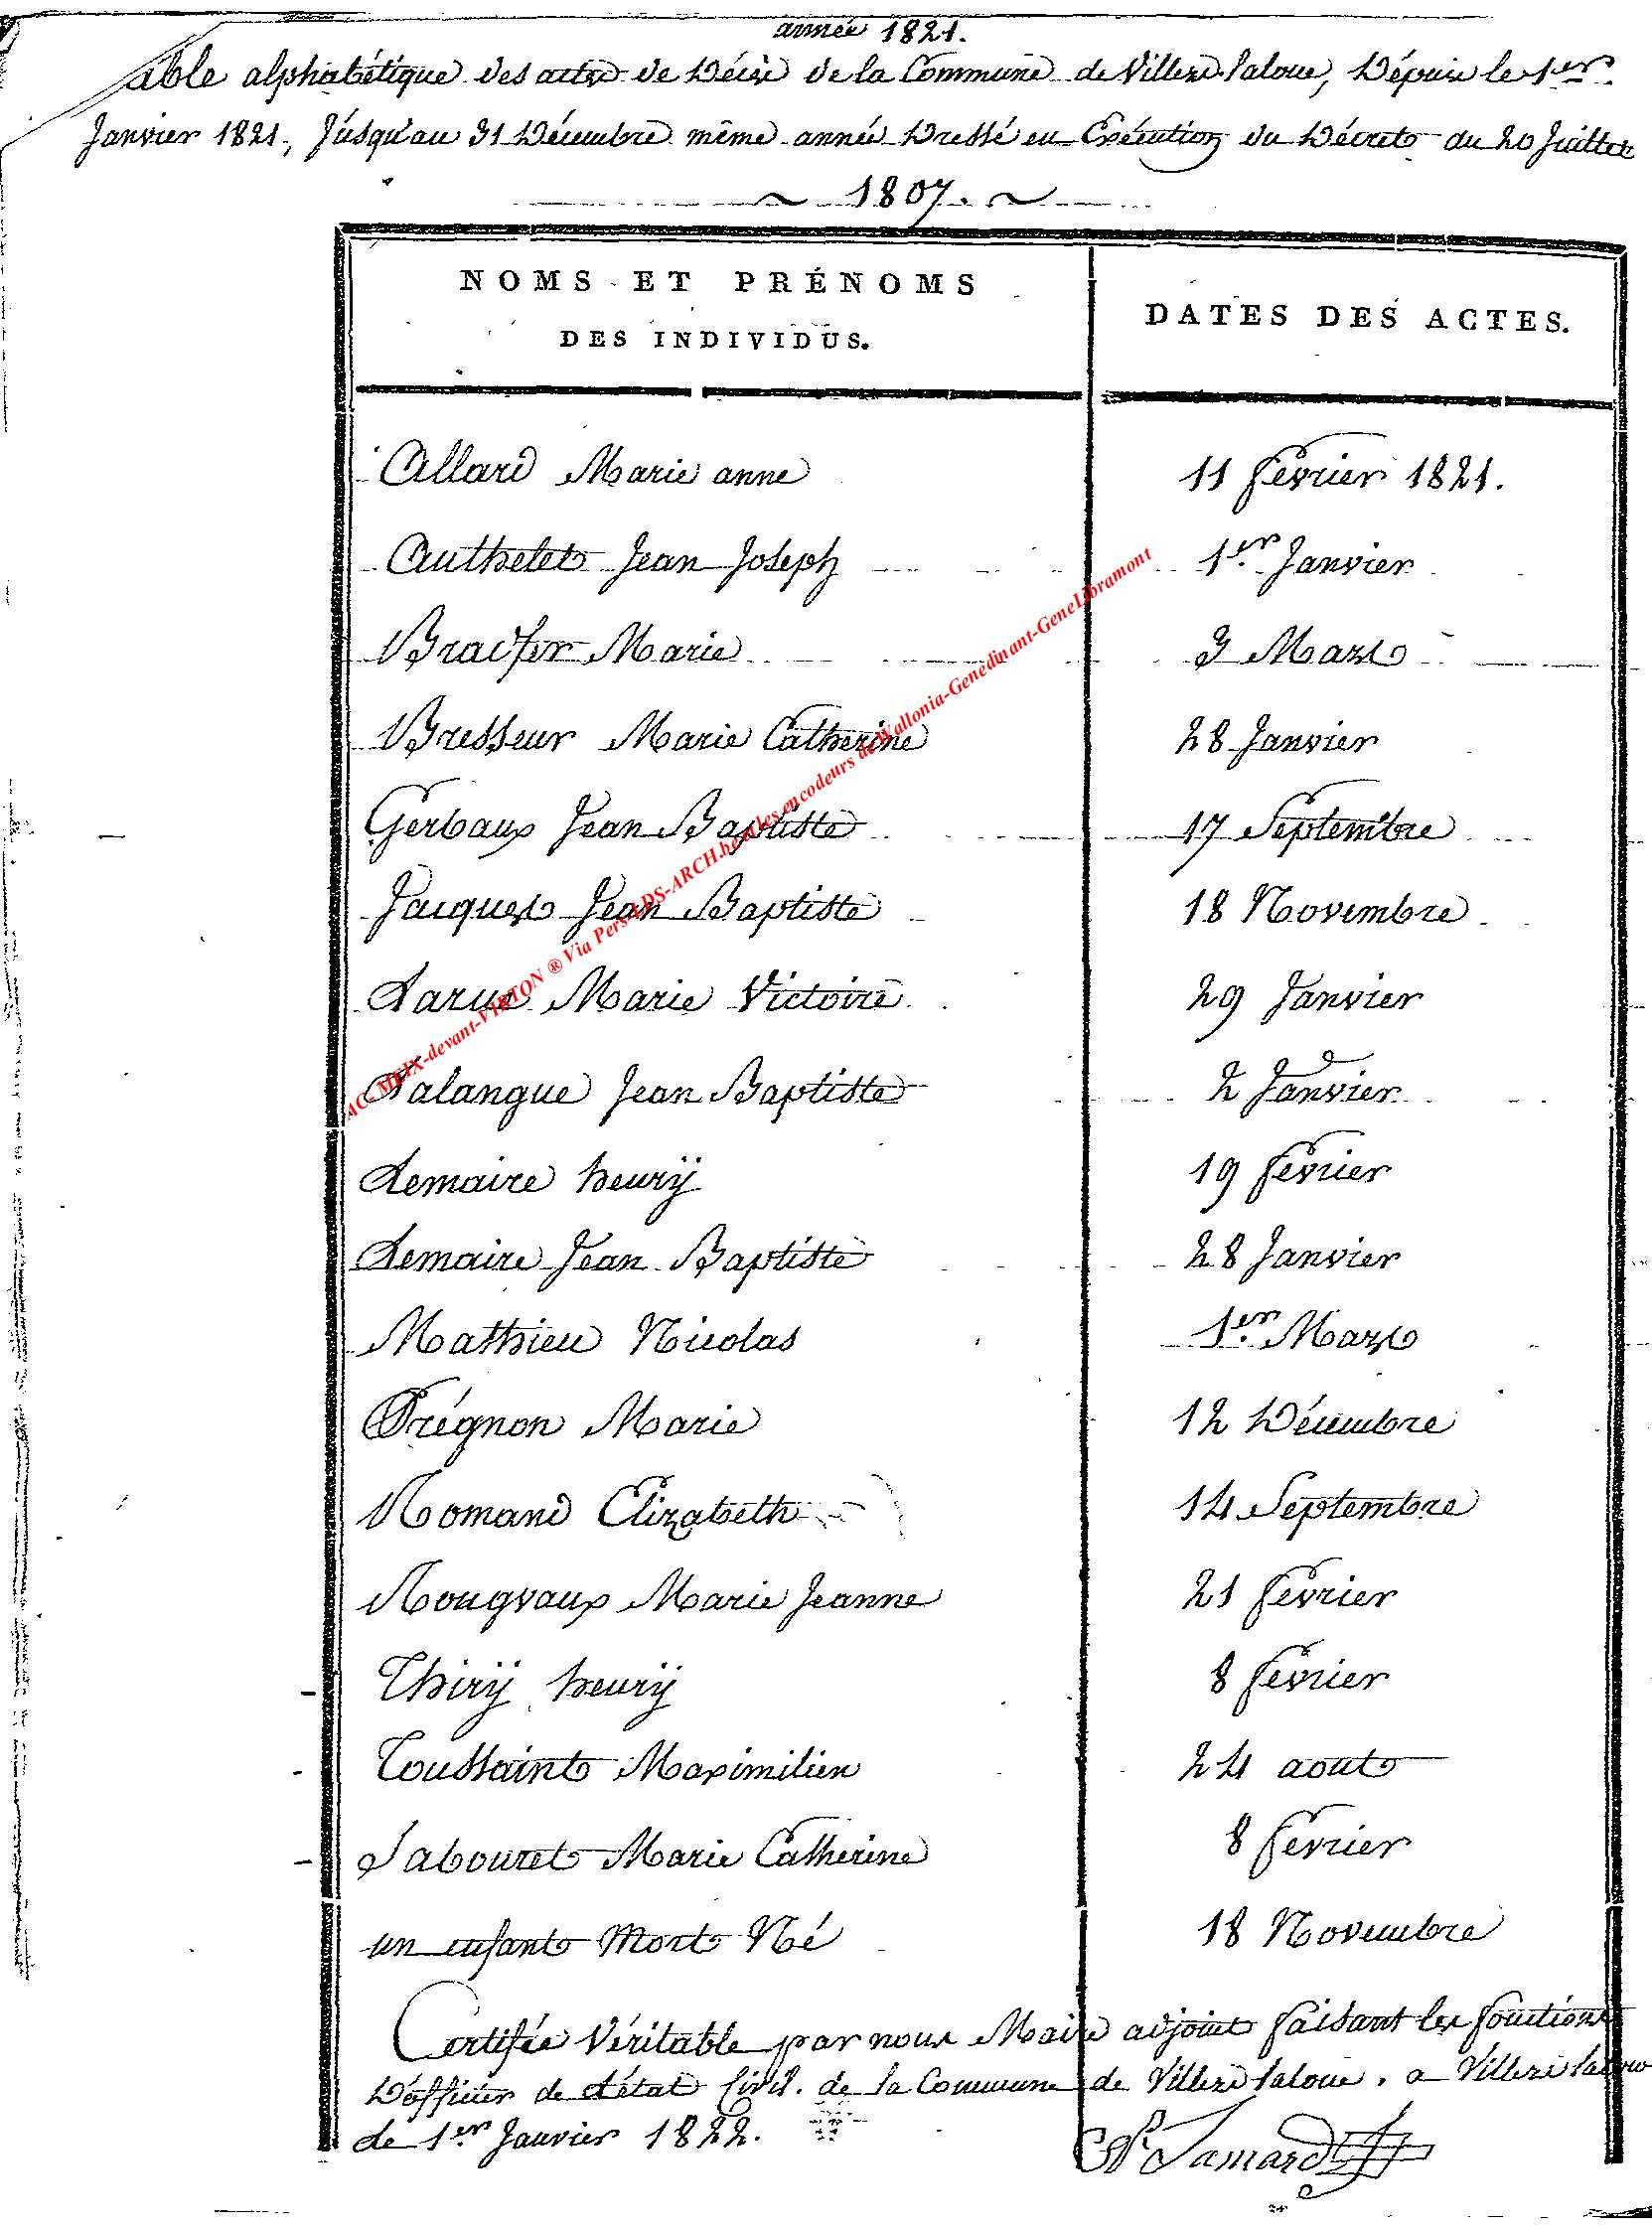 année 1821.
able alphabétique des actes de Décès de la Commune de Villers laloue, Dépuis le 1er
Janvier 1821, Jusqu'au 31 Décembre même année Dressé en Exécution du Décret du 20 Juillet
~ 1807. ~
NOMS ET PRÉNOMS
DES INDIVIDUS.
DATES DES ACTES.
Allard Marie anne 11 fevrier 1821.
Authelet Jean Joseph 1er Janvier
Bradfer Marie 3 Mars
Bresseur Marie Catherine 28 Janvier
Gerbaux Jean Baptiste 17 Septembre
Jacques Jean Baptiste 18 Novembre
Larue Marie Victoire 29 Janvier
Palangue Jean Baptiste 2 Janvier
Lemaire henrÿ 19 fevrier
Lemaire Jean Baptiste 28 Janvier
Mathieu Nicolas 1er Mars
Prégnon Marie 12 Décembre
Romand Elizabeth 14 Septembre
Rougvaux Marie Jeanne 21 fevrier
Thirÿ henrÿ 8 fevrier
Toussaint Maximilien 24 aout
Sabouret Marie Catherine 8 fevrier
un enfant Mort Né 18 Novembre
Certifée Véritable par nous Maire adjoint faisant les fonctions
D'officier de d'état Civil. de la Commune de Villers laloue. a Villers laloue
de 1er Janvier 1822.
AC-MEIX-devant-VIRTON ® Via Pers-LDS-ARCH.be et les encodeurs de Wallonia-Genedinant-GeneLibramont